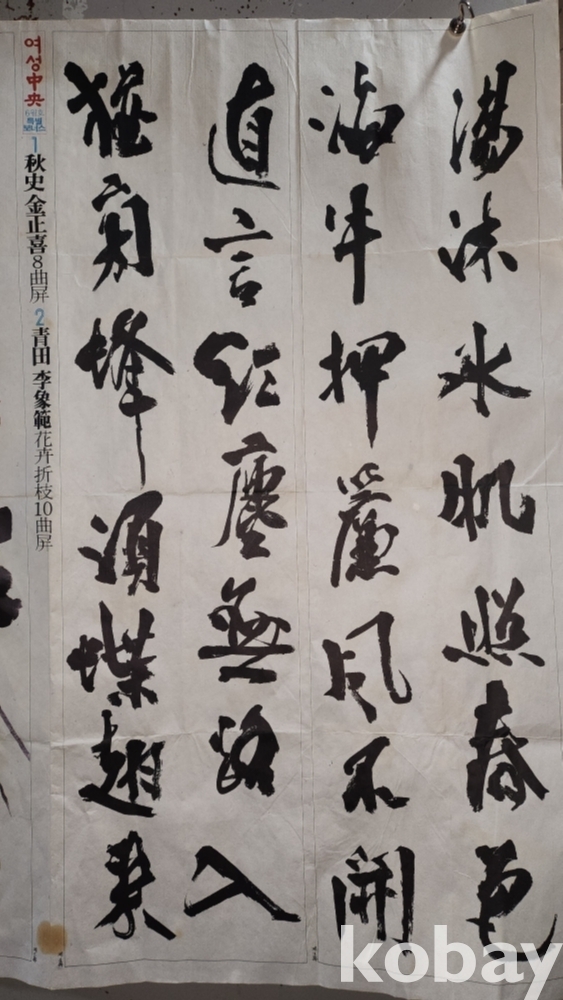 湯沐氷肌照春色
海牛押簾風不開
直言紅塵無路入
猶傍蜂須蝶翅來
여성中央
특별
보너스
1 秋史 金正喜 8曲屏 2 青田 李象範 花卉折枝10曲屏
kobay